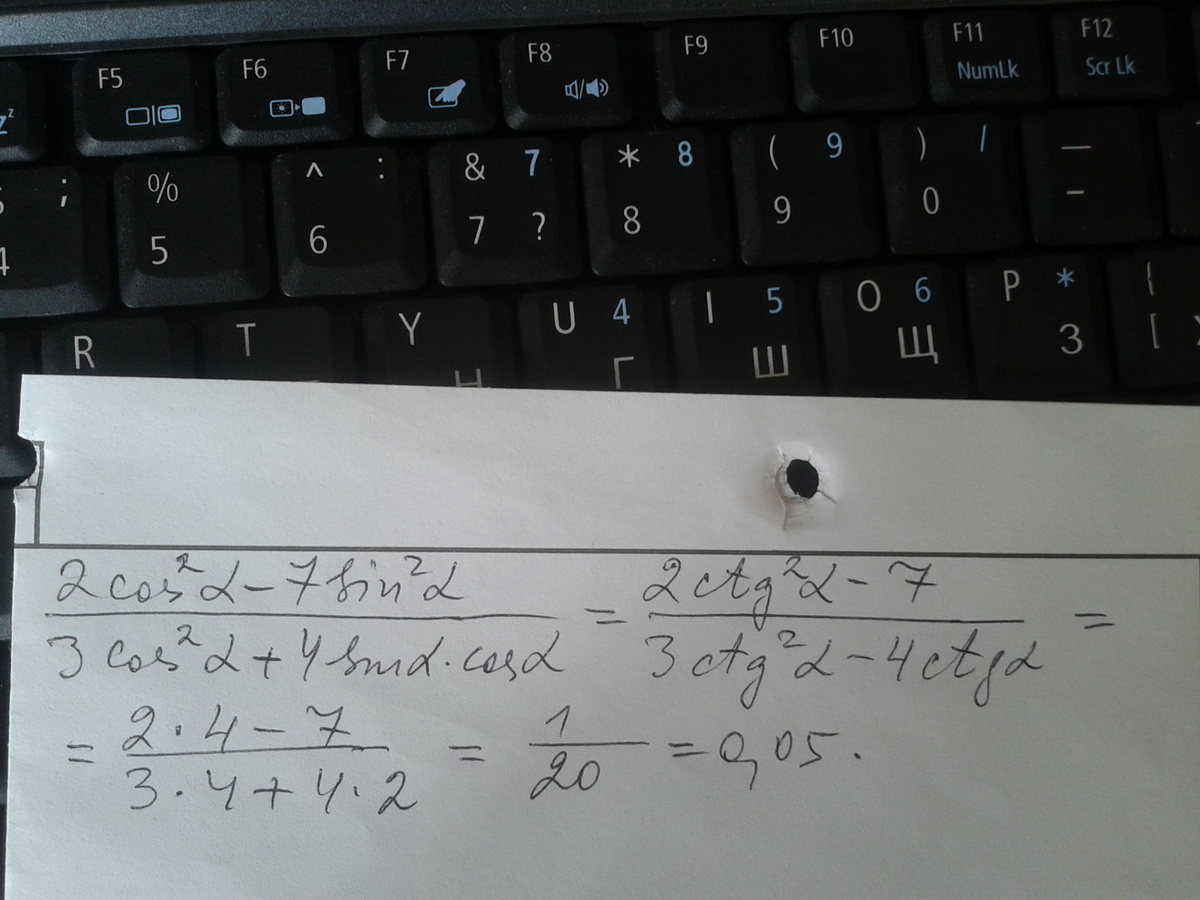 F5 F6 F7 F8 F9 F10 F11 F12
NumLk Scr Lk
; % ^ : & 7 * 8 ( 9 ) / —
4 5 6 7 ? 8 9 0 -
R T Y U 4 I 5 O 6 P * {
Г Ш Щ З [
2cos²α-7sin²α / 3cos²α+4sinα·cosα = 2ctg²α-7 / 3ctg²α-4ctgα =
= 2·4-7 / 3·4+4·2 = 1/20 = 0,05.